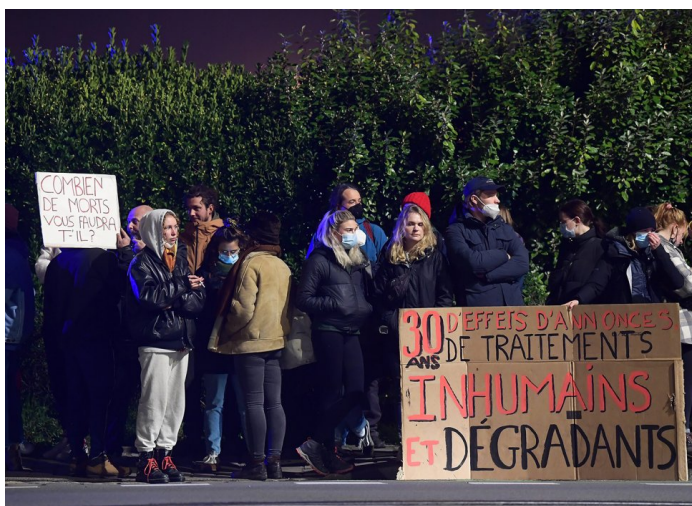 COMBIEN
DE MORTS
VOUS FAUDRA
T-IL?
30 D'EFFETS D'ANNONCES
ANS DE TRAITEMENTS
INHUMAINS
ET DÉGRADANTS